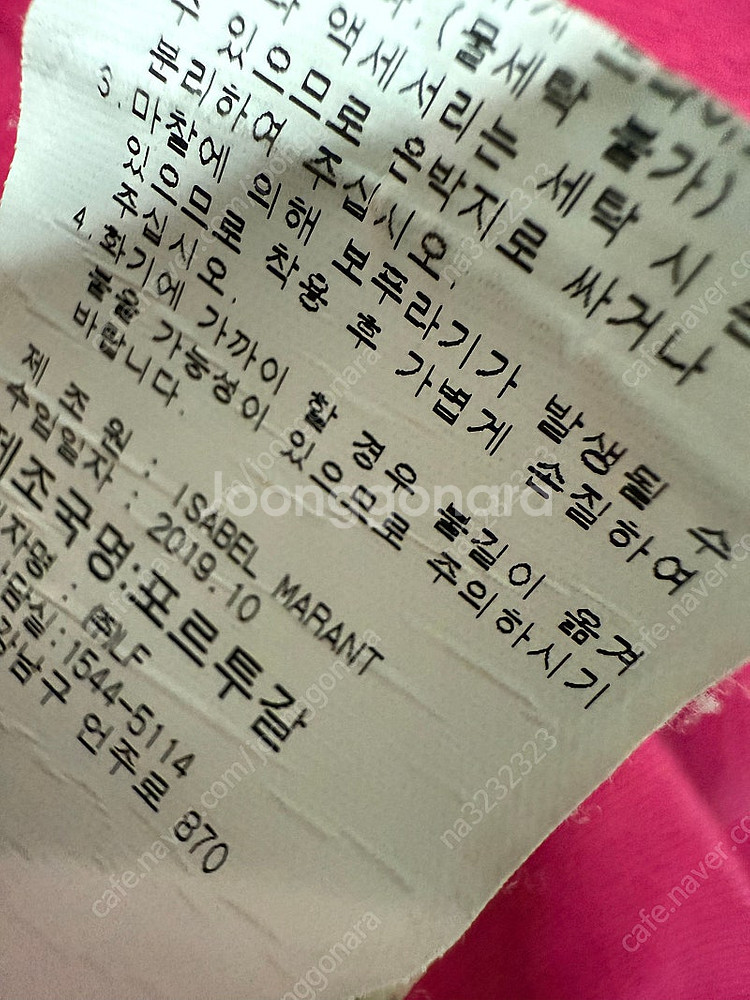 (물세탁 불가)
액세서리는 세탁 시
수 있으므로 은박지로 싸거나
분리하여 주십시오.
3.마찰에 의해 보푸라기가 발생될 수
있으므로 착용 후 가볍게 손질하여
주십시오.
4.화기에 가까이 할 경우 불길이 옮겨
붙을 가능성이 있으므로 주의하시기
바랍니다.
제 조 원 : ISABEL MARANT
수입일자 : 2019.10
제조국명:포르투갈
자명 : ㈜LF
담실:1544-5114
강남구 언주로 870
Joonggonara
cafe.naver.com/joonggonara
na3232323